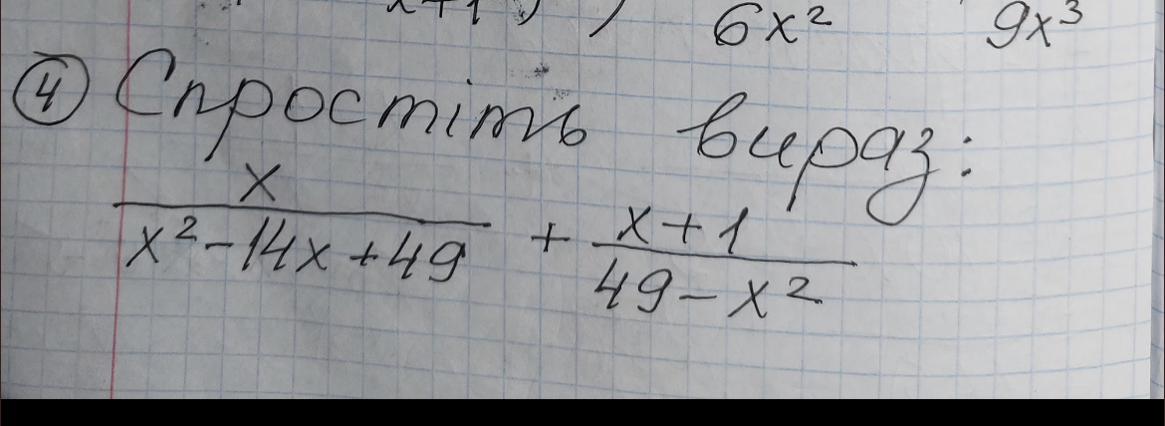 x+1 ) ) 6x² 9x³
④ Спростіть вираз:
x/(x²-14x+49) + (x+1)/(49-x²)